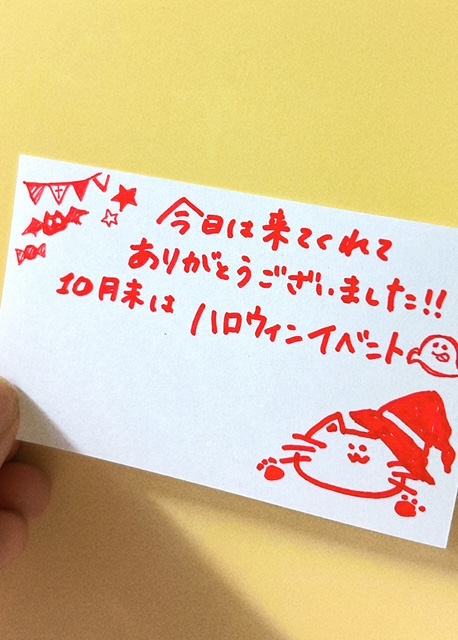 今日は来てくれて
ありがとうございました!!
10月末は ハロウィンイベント